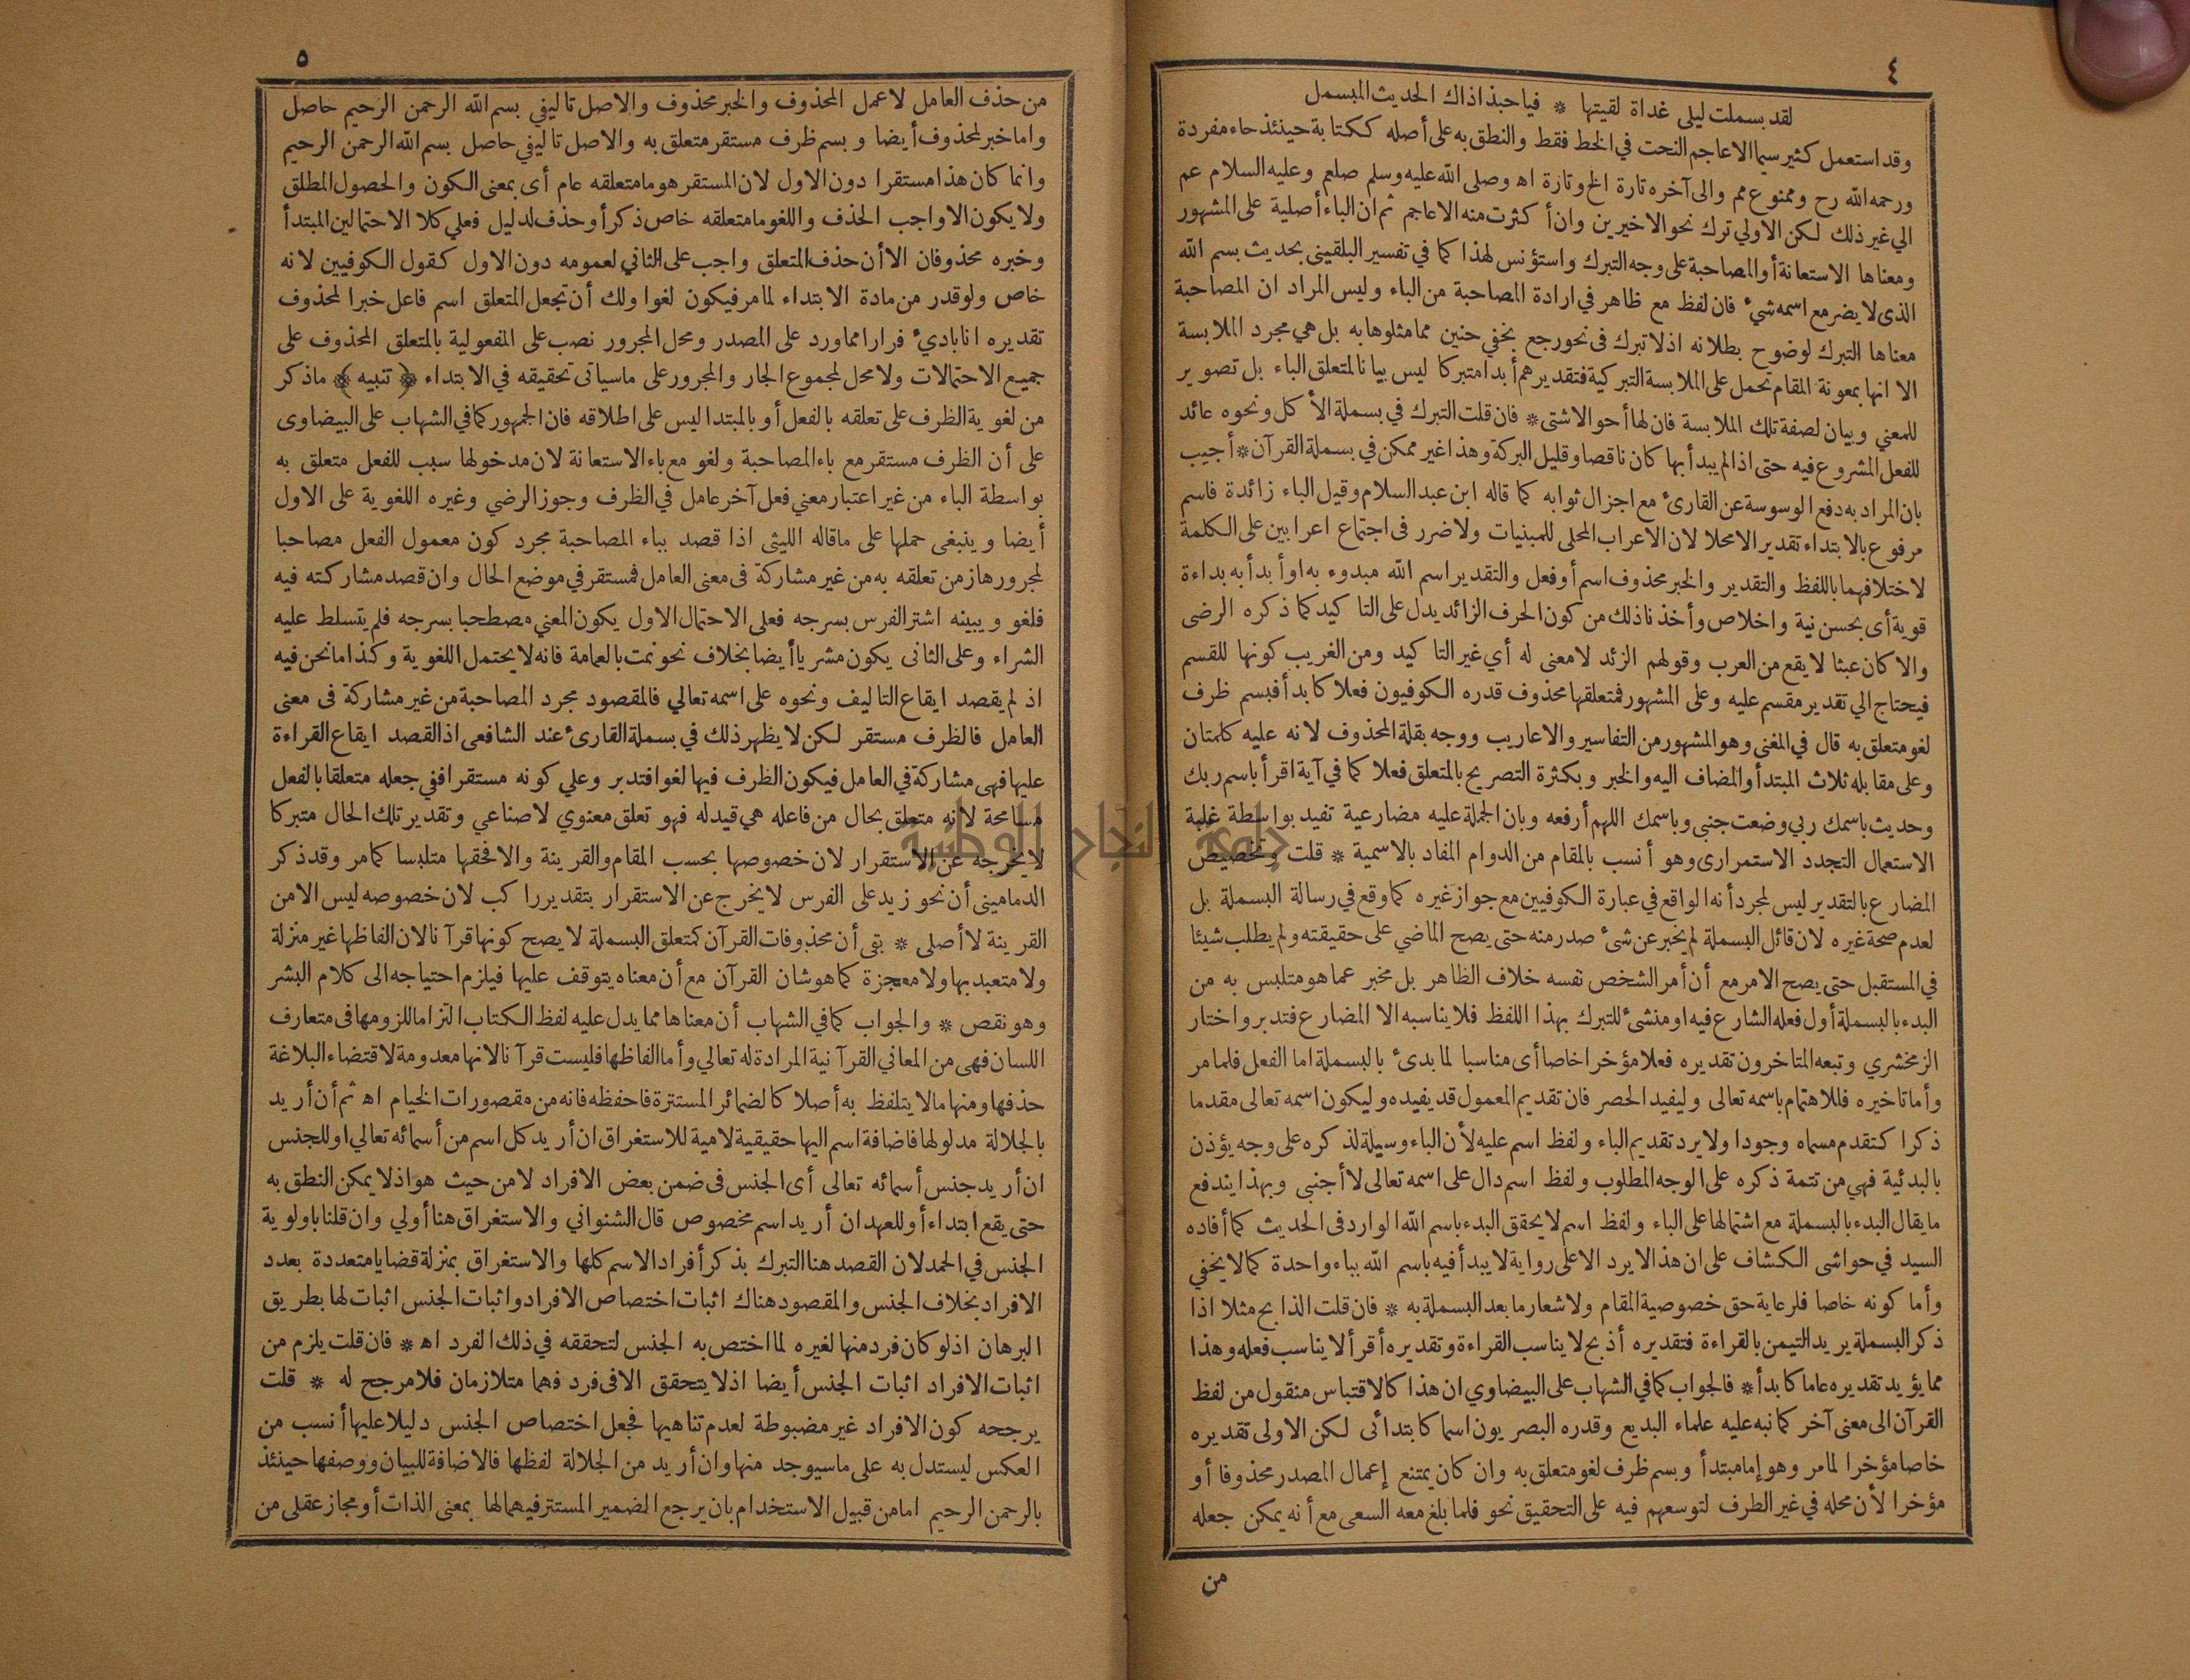 ٤
لقد بسملت ليلى غداة لقيتها * فيا حبذا ذاك الحديث المبسمل
وقد استعمل كثير سيما الاعاجم النحت في الخط فقط والنطق به على أصله ككتابة حينئذ حاء مفردة
ورحمه الله رح وممنوع مم والى آخره تارة الخ وتارة اه وصلى الله عليه وسلم صلعم وعليه السلام عم
الي غير ذلك لكن الاولي ترك نحو الاخيرين وان أكثرت منه الاعاجم ثم ان الباء أصلية على المشهور
ومعناها الاستعانة أو المصاحبة على وجه التبرك واستؤنس لهذا كما في تفسير البلقيني بحديث بسم الله
الذى لا يضر مع اسمه شيء فان لفظ مع ظاهر في ارادة المصاحبة من الباء وليس المراد ان المصاحبة
معناها التبرك لوضوح بطلانه اذ لا تبرك فى نحو رجع بخفي حنين مما مثلوها به بل هي مجرد الملابسة
الا انها بمعونة المقام تحمل على الملابسة التبركية فتقديرهم أبدا متبركا ليس بيانا لمتعلق الباء بل تصوير
للمعني وبيان لصفة تلك الملابسة فان لها أحوالا شتى * فان قلت التبرك في بسملة الأكل ونحوه عائد
للفعل المشروع فيه حتى اذا لم يبدأ بها كان ناقصا وقليل البركة وهذا غير ممكن في بسملة القرآن * أجيب
بان المراد به دفع الوسوسة عن القارئ مع اجزال ثوابه كما قاله ابن عبد السلام وقيل الباء زائدة فاسم
مرفوع بالابتداء تقديرا لا محلا لان الاعراب المحلى للمبنيات ولا ضرر فى اجتماع اعرابين على الكلمة
لاختلافهما باللفظ والتقدير والخبر محذوف اسم أو فعل والتقدير اسم الله مبدوء به او أبدأ به بداءة
قوية أى بحسن نية واخلاص وأخذنا ذلك من كون الحرف الزائد يدل على التاكيد كما ذكره الرضى
والا كان عبثا لا يقع من العرب وقولهم الزئد لا معنى له أي غير التاكيد ومن الغريب كونها للقسم
فيحتاج الي تقدير مقسم عليه وعلى المشهور فمتعلقها محذوف قدره الكوفيون فعلا كابدأ فبسم ظرف
لغو متعلق به قال في المغنى وهو المشهور من التفاسير والاعاريب ووجه بقلة المحذوف لانه عليه كلمتان
وعلى مقابله ثلاث المبتدأ والمضاف اليه والخبر وبكثرة التصريح بالمتعلق فعلا كما في آية اقرأ باسم ربك
وحديث باسمك ربي وضعت جنبى وباسمك اللهم أرفعه وبان الجملة عليه مضارعية تفيد بواسطة غلبة
الاستعمال التجدد الاستمرارى وهو أنسب بالمقام من الدوام المفاد بالاسمية * قلت وتخصيص
المضارع بالتقدير ليس لمجرد أنه الواقع في عبارة الكوفيين مع جواز غيره كما وقع في رسالة البسملة بل
لعدم صحة غيره لان قائل البسملة لم يخبر عن شيء صدر منه حتى يصح الماضي على حقيقته ولم يطلب شيئا
في المستقبل حتى يصح الامر مع أن أمر الشخص نفسه خلاف الظاهر بل مخبر عما هو متلبس به من
البدء بالبسملة أول فعله الشارع فيه او منشئ للتبرك بهذا اللفظ فلا يناسبه الا المضارع فتدبر واختار
الزمخشري وتبعه المتاخرون تقديره فعلا مؤخرا خاصا أى مناسبا لما بدئ بالبسملة اما الفعل فلما مر
وأما تاخيره فللاهتمام باسمه تعالى وليفيد الحصر فان تقديم المعمول قد يفيده وليكون اسمه تعالى مقدما
ذكرا كتقدم مسماه وجودا ولا يرد تقديم الباء ولفظ اسم عليه لأن الباء وسيلة لذكره على وجه يؤذن
بالبدئية فهي من تتمة ذكره على الوجه المطلوب ولفظ اسم دال على اسمه تعالى لا أجنبي وبهذا يندفع
ما يقال البدء بالبسملة مع اشتمالها على الباء ولفظ اسم لا يحقق البدء باسم الله الوارد فى الحديث كما أفاده
السيد في حواشى الكشاف على ان هذا لا يرد الا على رواية لا يبدأ فيه باسم الله بباء واحدة كما لا يخفي
وأما كونه خاصا فلرعاية حق خصوصية المقام ولاشعار ما بعد البسملة به * فان قلت الذابح مثلا اذا
ذكر البسملة يريد التيمن بالقراءة فتقديره أذبح لا يناسب القراءة وتقديره أقرأ لا يناسب فعله وهذا
مما يؤيد تقديره عاما كابدأ * فالجواب كما في الشهاب على البيضاوي ان هذا كالاقتباس منقول من لفظ
القرآن الى معنى آخر كما نبه عليه علماء البديع وقدره البصريون اسما كابتدائى لكن الاولى تقديره
خاصا مؤخرا لما مر وهو إما مبتدأ وبسم ظرف لغو متعلق به وان كان يمتنع إعمال المصدر محذوفا أو
مؤخرا لأن محله في غير الظرف لتوسعهم فيه على التحقيق نحو فلما بلغ معه السعى مع أنه يمكن جعله
من
٥
من حذف العامل لا عمل المحذوف والخبر محذوف والاصل تاليفي بسم الله الرحمن الرحيم حاصل
واما خبر لمحذوف أيضا وبسم ظرف مستقر متعلق به والاصل تاليفي حاصل بسم الله الرحمن الرحيم
وانما كان هذا مستقرا دون الاول لان المستقر هو ما متعلقه عام أى بمعنى الكون والحصول المطلق
ولا يكون الا واجب الحذف واللغو ما متعلقه خاص ذكر أو حذف لدليل فعلي كلا الاحتمالين المبتدأ
وخبره محذوفان الا أن حذف المتعلق واجب على الثاني لعمومه دون الاول كقول الكوفيين لانه
خاص ولو قدر من مادة الابتداء لما مر فيكون لغوا ولك أن تجعل المتعلق اسم فاعل خبرا لمحذوف
تقديره انا بادئ فرارا مما ورد على المصدر ومحل المجرور نصب على المفعولية بالمتعلق المحذوف على
جميع الاحتمالات ولا محل لمجموع الجار والمجرور على ماسياتى تحقيقه في الابتداء ﴿ تنبيه ﴾ ماذكر
من لغوية الظرف على تعلقه بالفعل أو بالمبتدا ليس على اطلاقه فان الجمهور كما في الشهاب على البيضاوى
على أن الظرف مستقر مع باء المصاحبة ولغو مع باء الاستعانة لان مدخولها سبب للفعل متعلق به
بواسطة الباء من غير اعتبار معني فعل آخر عامل في الظرف وجوز الرضي وغيره اللغوية على الاول
أيضا وينبغى حملها على ماقاله الليثى اذا قصد بباء المصاحبة مجرد كون معمول الفعل مصاحبا
لمجرورها زمن تعلقه به من غير مشاركة فى معنى العامل فمستقر في موضع الحال وان قصد مشاركته فيه
فلغو ويبينه اشتر الفرس بسرجه فعلى الاحتمال الاول يكون المعني مصطحبا بسرجه فلم يتسلط عليه
الشراء وعلى الثانى يكون مشريا أيضا بخلاف نحو نمت بالعمامة فانه لا يحتمل اللغوية وكذا ما نحن فيه
اذ لم يقصد ايقاع التاليف ونحوه على اسمه تعالي فالمقصود مجرد المصاحبة من غير مشاركة فى معنى
العامل فالظرف مستقر لكن لا يظهر ذلك في بسملة القارئ عند الشافعى اذ القصد ايقاع القراءة
عليها فهى مشاركة في العامل فيكون الظرف فيها لغوا فتدبر وعلي كونه مستقرا ففي جعله متعلقا بالفعل
مسامحة لانه متعلق بحال من فاعله هي قيد له فهو تعلق معنوي لا صناعي وتقدير تلك الحال متبركا
لا يخرجه عن الاستقرار لان خصوصها بحسب المقام والقرينة والا فحقها متلبسا كما مر وقد ذكر
الدمامينى أن نحو زيد على الفرس لا يخرج عن الاستقرار بتقدير راكب لان خصوصه ليس الا من
القرينة لا أصلى * بقى أن محذوفات القرآن كمتعلق البسملة لا يصح كونها قرآنا لان الفاظها غير منزلة
ولا متعبد بها ولا معجزة كما هو شان القرآن مع أن معناه يتوقف عليها فيلزم احتياجه الى كلام البشر
وهو نقص * والجواب كما في الشهاب أن معناها مما يدل عليه لفظ الكتاب التزاما للزومها فى متعارف
اللسان فهى من المعاني القرآنية المرادة له تعالي وأما الفاظها فليست قرآنا لانها معدومة لاقتضاء البلاغة
حذفها ومنها مالا يتلفظ به أصلا كالضمائر المستترة فاحفظه فانه من مقصورات الخيام اه ثم أن أريد
بالجلالة مدلولها فاضافة اسم اليها حقيقية لامية للاستغراق ان أريد كل اسم من أسمائه تعالي او للجنس
ان أريد جنس أسمائه تعالى أى الجنس فى ضمن بعض الافراد لا من حيث هو اذ لا يمكن النطق به
حتى يقع ابتداء أو للعهد ان أريد اسم مخصوص قال الشنواني والاستغراق هنا أولي وان قلنا باولوية
الجنس في الحمد لان القصد هنا التبرك بذكر أفراد الاسم كلها والاستغراق بمنزلة قضايا متعددة بعدد
الافراد بخلاف الجنس والمقصود هناك اثبات اختصاص الافراد واثبات الجنس اثبات لها بطريق
البرهان اذ لو كان فرد منها لغيره لما اختص به الجنس لتحققه في ذلك الفرد اه * فان قلت يلزم من
اثبات الافراد اثبات الجنس أيضا اذ لا يتحقق الا فى فرد فهما متلازمان فلا مرجح له * قلت
يرجحه كون الافراد غير مضبوطة لعدم تناهيها فجعل اختصاص الجنس دليلا عليها أنسب من
العكس ليستدل به على ماسيوجد منها وان أريد من الجلالة لفظها فالاضافة للبيان ووصفها حينئذ
بالرحمن الرحيم اما من قبيل الاستخدام بان يرجع الضمير المستتر فيهما لها بمعنى الذات أو مجاز عقلى من
جامعة النجاح الوطنية